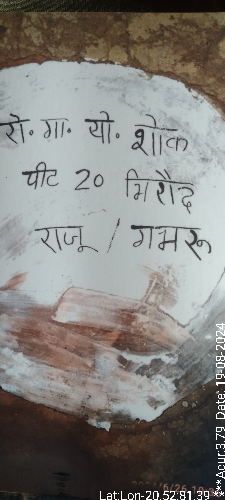 रो॰ गा॰ यो॰ शोक
पीट 20 भिरौद
राजू / गमरू
Lat:Lon-20.52:81.39**
***Acur:3.79 Date: 19-08-2024